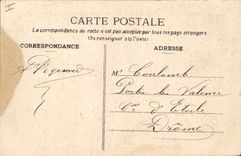 CARTE POSTALE
La correspondance au recto n'est pas acceptée par tous les pays étrangers
(Se renseigner à la Poste)
CORRESPONDANCE
ADRESSE
Mr Coulomb
Portes les Valence
Cne d'Etoile
Drôme